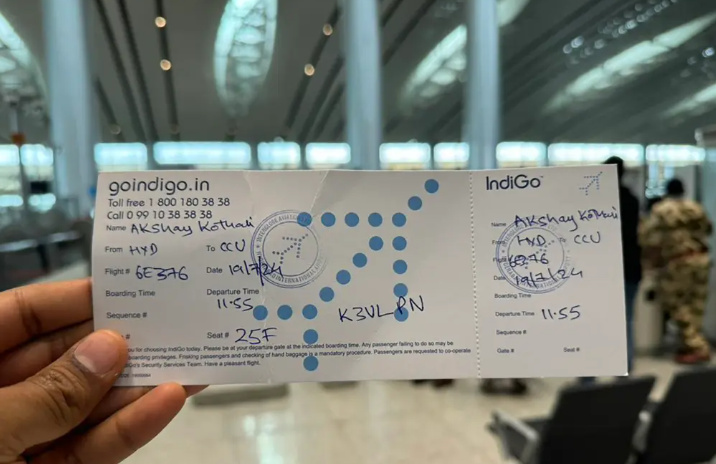 goindigo.in
Toll free 1 800 180 38 38
Call 0 99 10 38 38 38
Name AKSHay KoTHaRi
From HYD To CCU
Flight # 6E376 Date 19/7/24
Boarding Time Departure Time
11·55
K3VLPN
Sequence #
Seat # 25F
you for choosing IndiGo today. Please be at your departure gate at the indicated boarding time. Any passenger failing to do so may be
boarding privileges. Frisking passengers and checking of hand baggage is a mandatory procedure. Passengers are requested to co-operate
Security Services Team. Have a pleasant flight.
IndiGo
Name AKshay KoTHaRi
From HYD To CCU
Flight 6E376
Date 19/7/24
Boarding Time
Departure Time 11·55
Sequence #
Gate # Seat #